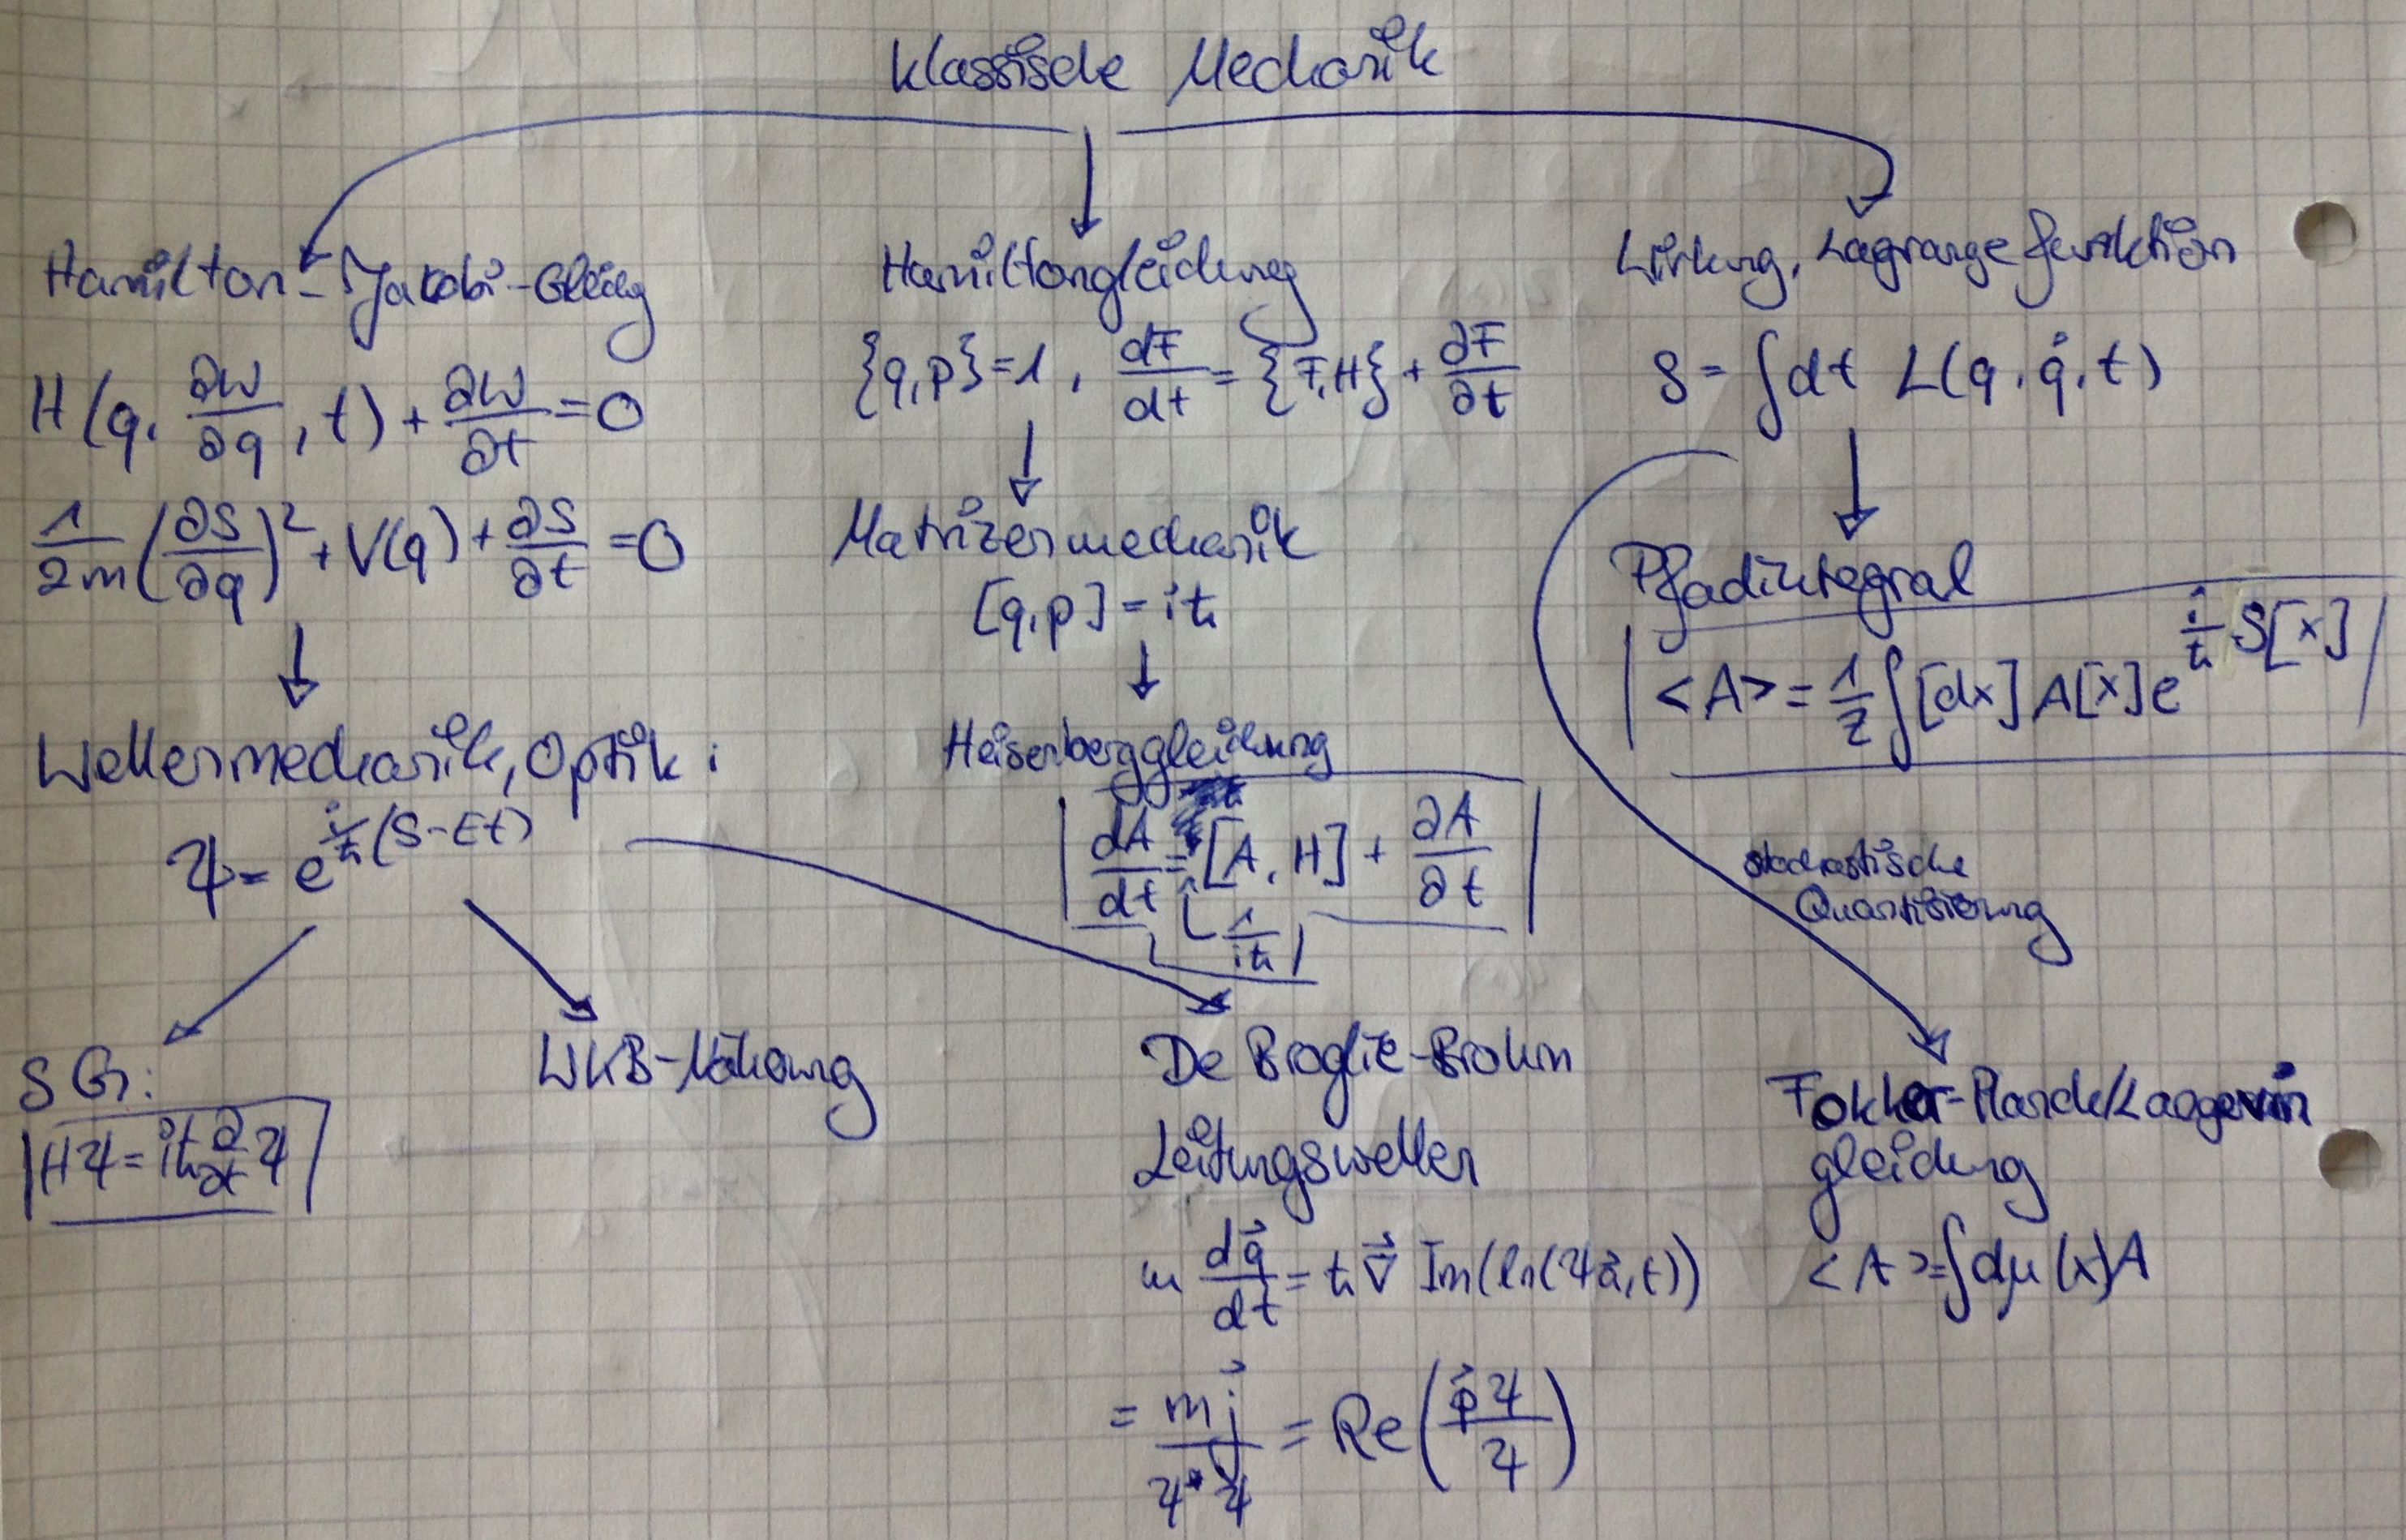 Klassische Mechanik
Hamilton-Jakobi-Gleichg
H(q, ∂W/∂q, t) + ∂W/∂t = 0
1/2m (∂S/∂q)² + V(q) + ∂S/∂t = 0
Wellenmechanik, Optik:
Ψ = e^{i/ħ (S-Et)}
SG:
HΨ = iħ ∂/∂t Ψ
WKB-Näherung
Hamiltongleichung
{q,p} = 1, dF/dt = {F,H} + ∂F/∂t
Matrizenmechanik
[q,p] = iħ
Heisenberggleichung
dA/dt = [A, H] + ∂A/∂t
1/iħ
De Broglie-Brohm
Leitungswellen
m dq⃗/dt = ħ ∇⃗ Im(ln(Ψ(q⃗,t))
= m j⃗ / Ψ*Ψ = Re(p⃗Ψ/Ψ)
Wirkung, Lagrangefunktion
S = ∫dt L(q, q̇, t)
Pfadintegral
<A> = 1/Z ∫[dx] A[x] e^{i/ħ S[x]}
stochastische
Quantisierung
Fokker-Planck/Langevin
gleichung
<A> = ∫dμ(x)A